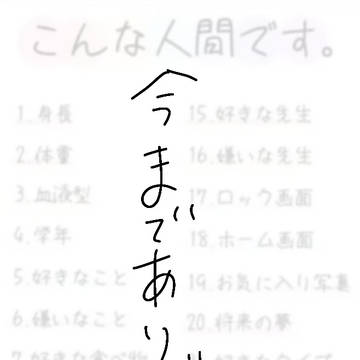 こんな人間です。
1.身長
2.体重
3.血液型
4.学年
5.好きなこと
6.嫌いなこと
7.好きな食べ物
15.好きな先生
16.嫌いな先生
17.ロック画面
18.ホーム画面
19.お気に入り写真
20.将来の夢
今までありが